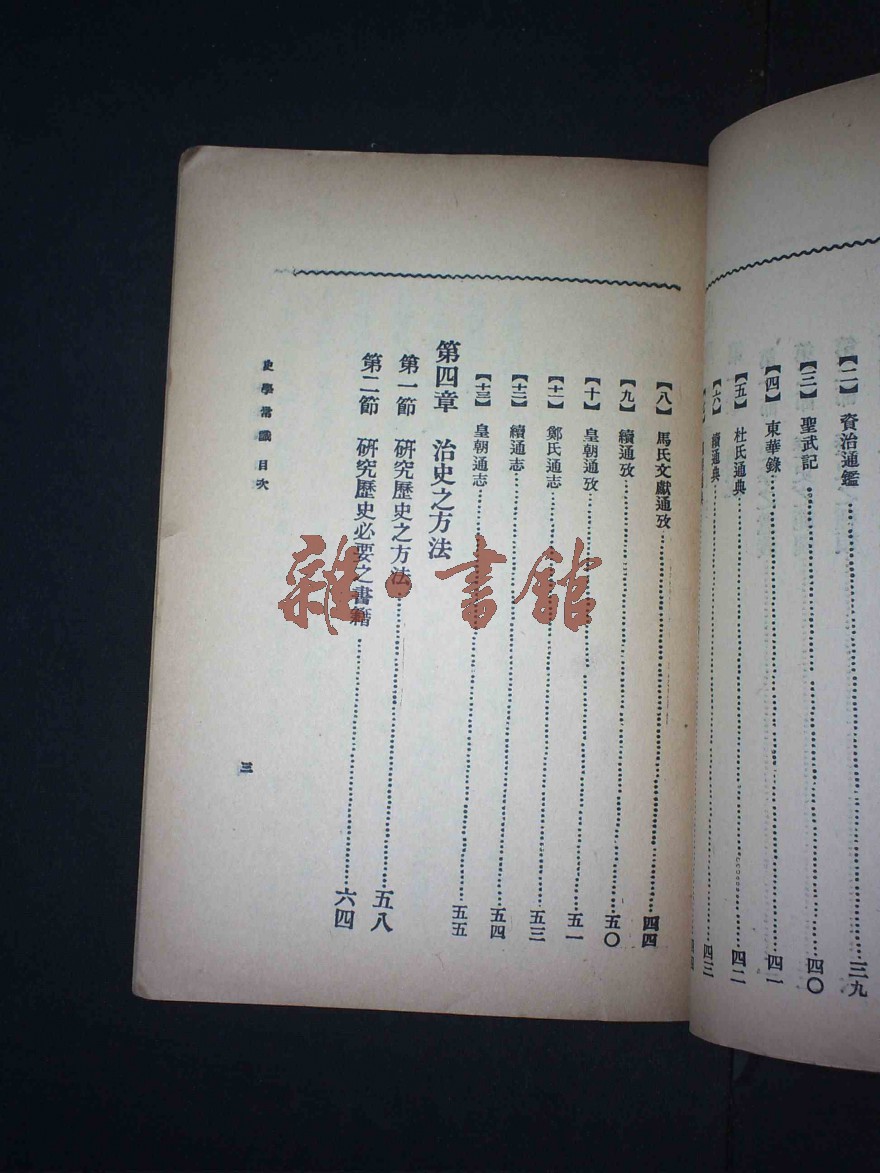 【二】資治通鑑三九
【三】聖武記四〇
【四】東華錄四一
【五】杜氏通典四二
【六】續通典四三
【八】馬氏文獻通攷四四
【九】續通攷五〇
【十】皇朝通攷五一
【十一】鄭氏通志五三
【十二】續通志五四
【十三】皇朝通志五五
第四章 治史之方法
第一節 研究歷史之方法五八
第二節 研究歷史必要之書籍六四
史學常識 目次
三
雜·書館